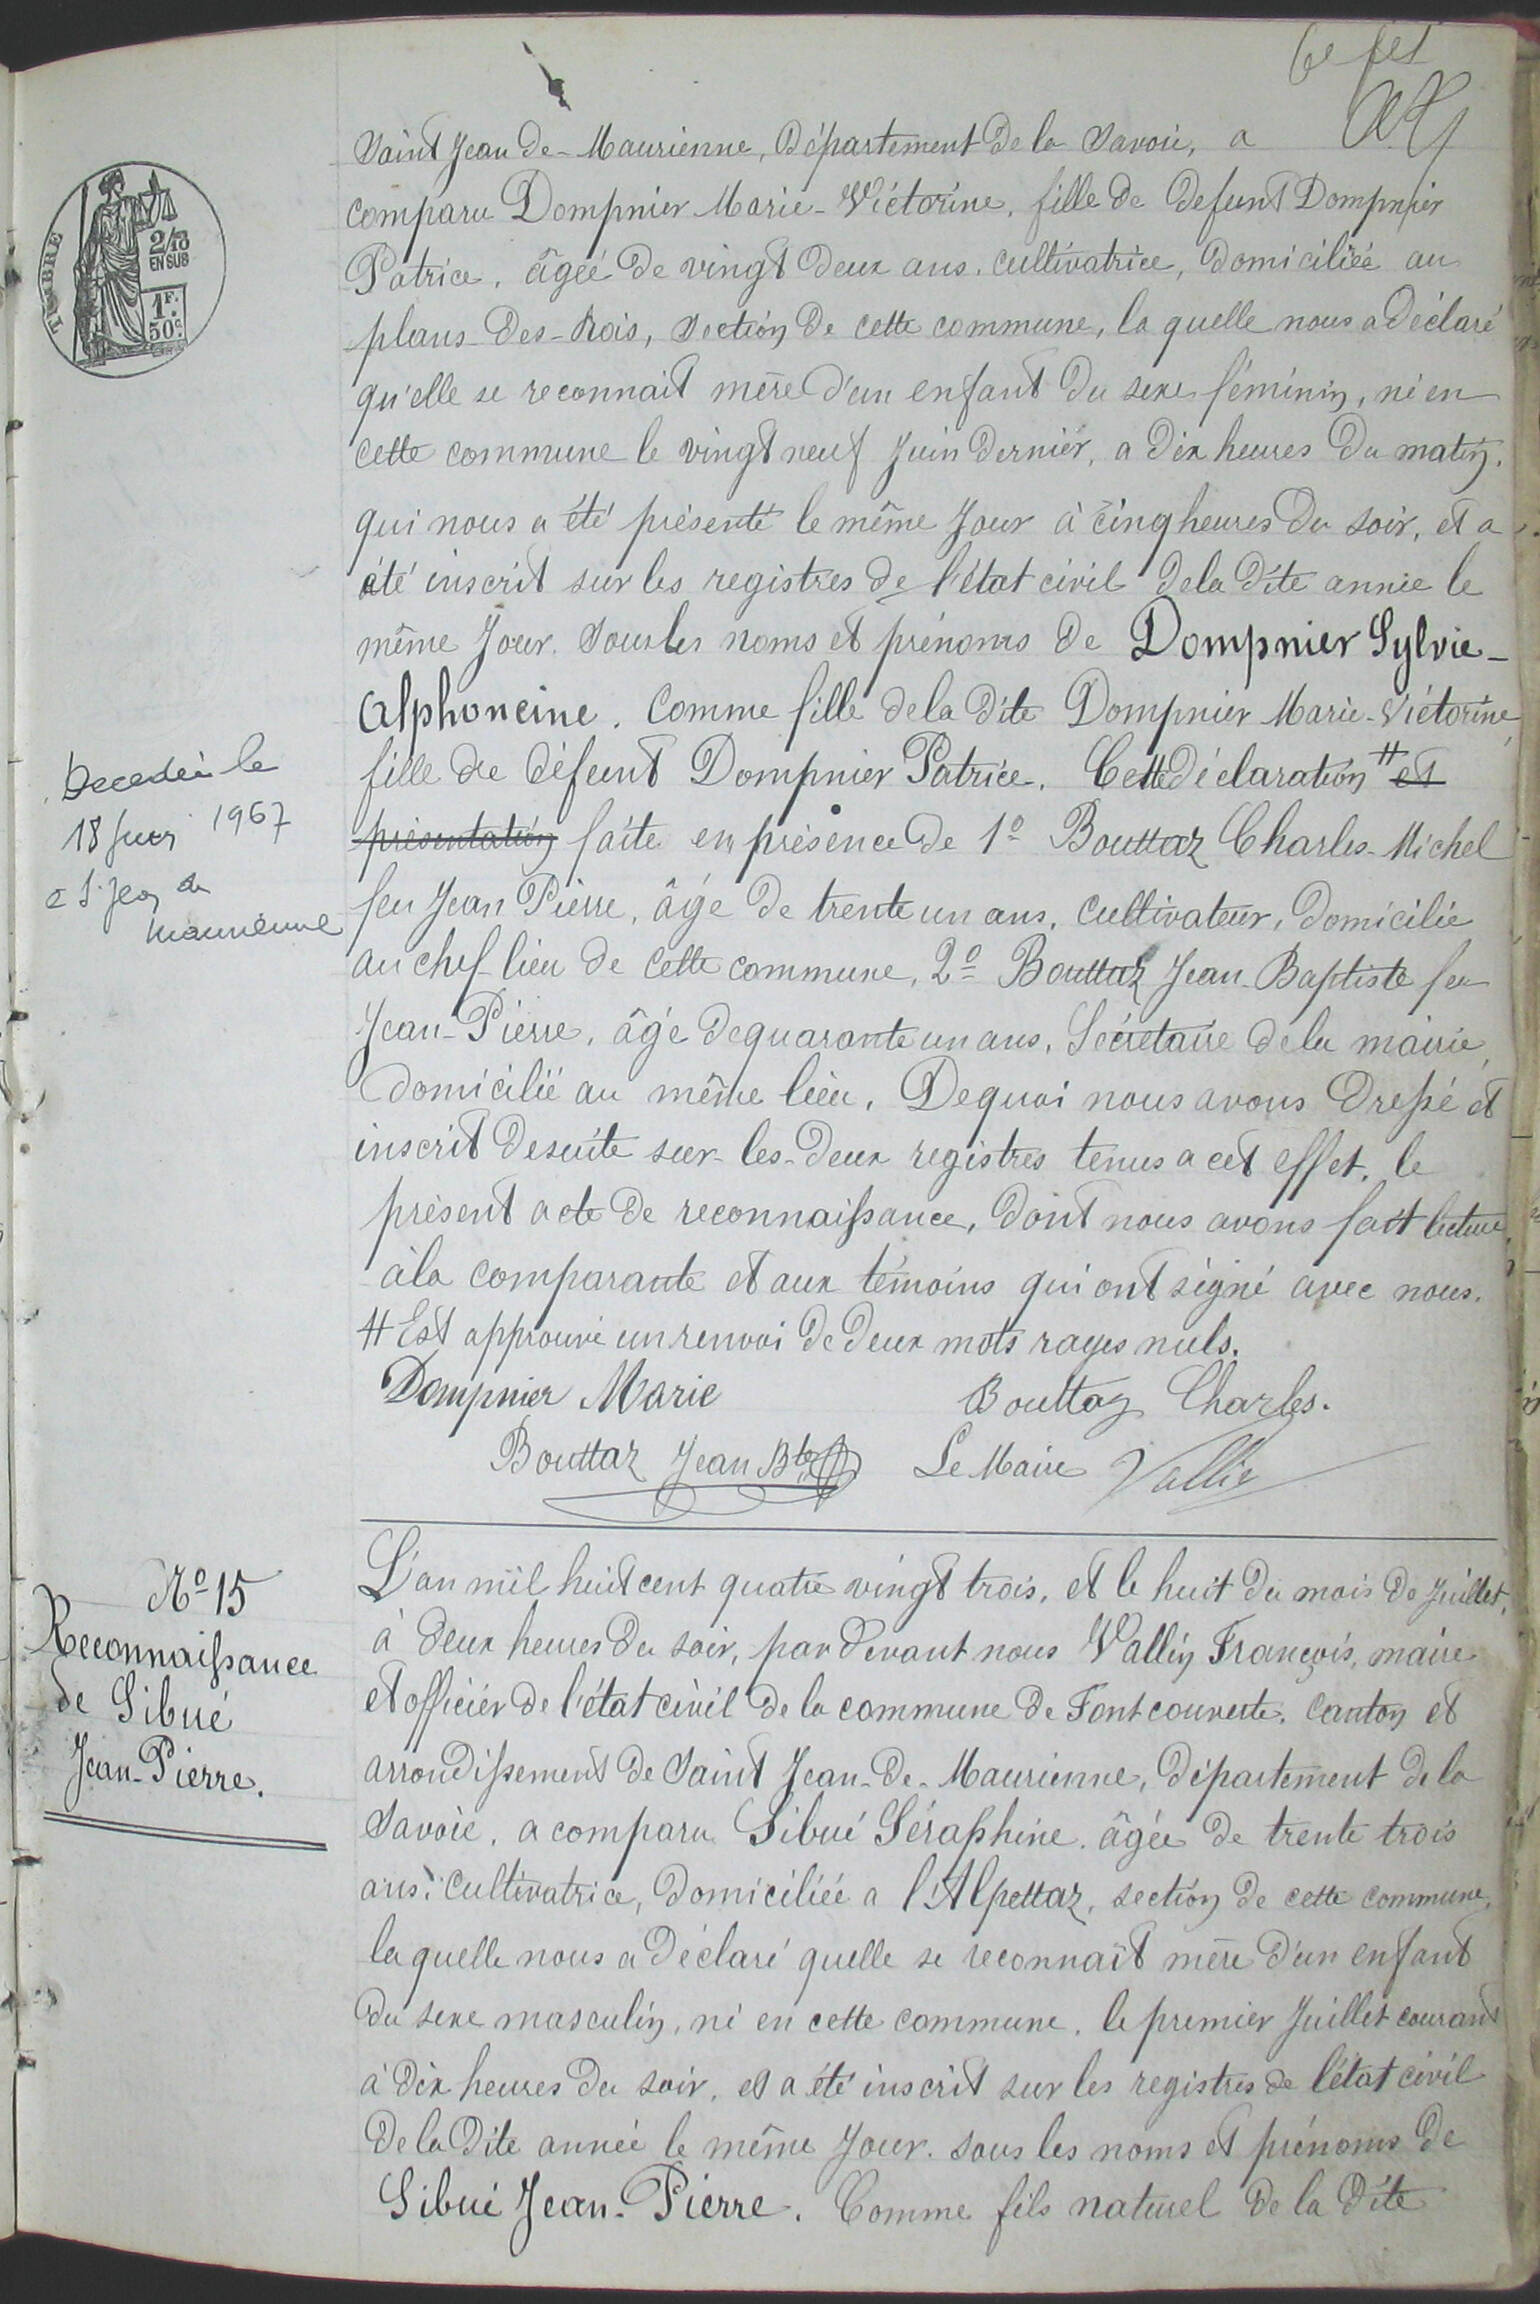 6e fet
TIMBRE
2/10
EN SUS
1F.
50c.
Saint Jean de-Maurienne, Département de la Savoie, a
comparu Dompnier Marie-Victorine, fille de defunt Dompnier
Patrice, âgée de vingt deux ans, cultivatrice, domiciliée au
plans-des-Rois, section de cette commune, la quelle nous a déclaré
qu'elle se reconnait mère d'un enfant du sexe féminin, né en
cette commune le vingt neuf Juin dernier, a dix heures du matin,
qui nous a été présenté le même Jour à cinq heures du soir, et a
été inscrit sur les registres de l'état civil de la dite année le
même Jour. Sous les noms et prénoms de Dompnier Sylvie-
Alphoncine. Comme fille de la dite Dompnier Marie-Victorine,
fille de défunt Dompnier Patrice. Cette déclaration # et
présentation faite en présence de 1º Bouttaz Charles-Michel
feu Jean Pierre, âgé de trente un ans, cultivateur, domicilié
au chef-lieu de cette commune, 2º Bouttaz Jean-Baptiste feu
Jean-Pierre, âgé de quarante un ans, Sécrétaire de la mairie,
domicilié au même lieu. De quoi nous avons dressé et
inscrit desuite sur les deux registres tenus a cet effet, le
présent acte de reconnaissance, dont nous avons fait lecture,
à la comparante et aux témoins qui ont signé avec nous.
# Est approuvé un renvoi de deux mots rayes nuls.
Dompnier Marie Bouttaz Charles.
Bouttaz Jean Bte Le Maire Vallin
Decedée le
18 1967
a S. Jean de
Maurienne
Nº 15
Reconnaissance
de Sibué
Jean-Pierre.
L'an mil huit cent quatre vingt trois, et le huit du mois de Juillet,
à deux heures du soir, par devant nous Vallin François, maire
et officier de l'état civil de la commune de Fontcouverte, canton et
arrondissement de Saint Jean-de-Maurienne, département de la
Savoie, a comparu Sibué Séraphine, âgée de trente trois
ans, cultivatrice, domiciliée a l'Alpettaz, section de cette commune,
la quelle nous a déclaré quelle se reconnait mère d'un enfant
du sexe masculin, né en cette commune, le premier Juillet courant
à dix heures du soir, et a été inscrit sur les registres de l'état civil
de la dite année le même Jour. sous les noms et prénoms de
Sibué Jean-Pierre. Comme fils naturel de la dite